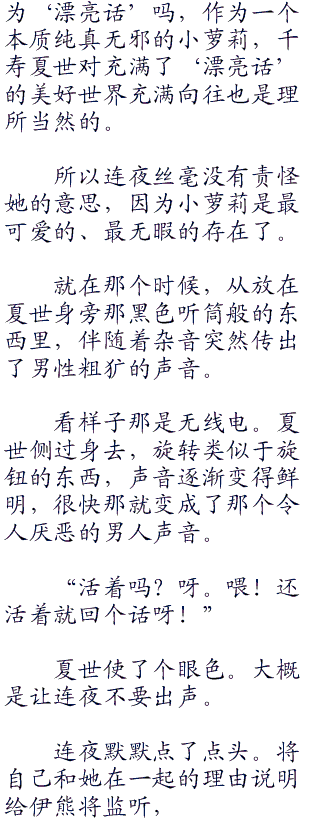 为‘漂亮话’吗，作为一个
本质纯真无邪的小萝莉，千
寿夏世对充满了‘漂亮话’
的美好世界充满向往也是理
所当然的。
所以连夜丝毫没有责怪
她的意思，因为小萝莉是最
可爱的、最无暇的存在了。
就在那个时候，从放在
夏世身旁那黑色听筒般的东
西里，伴随着杂音突然传出
了男性粗犷的声音。
看样子那是无线电。夏
世侧过身去，旋转类似于旋
钮的东西，声音逐渐变得鲜
明，很快那就变成了那个令
人厌恶的男人声音。
“活着吗？呀。喂！还
活着就回个话呀！”
夏世使了个眼色。大概
是让连夜不要出声。
连夜默默点了点头。将
自己和她在一起的理由说明
给伊熊将监听，